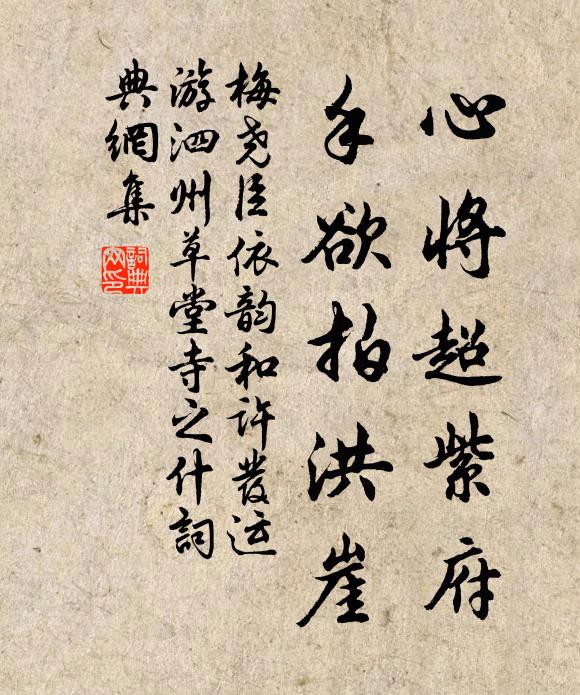 心将超紫府
手欲拍洪崖
梅尧臣依韵和许發运
游泗州草堂寺之什詞
典網集
詞典
网印